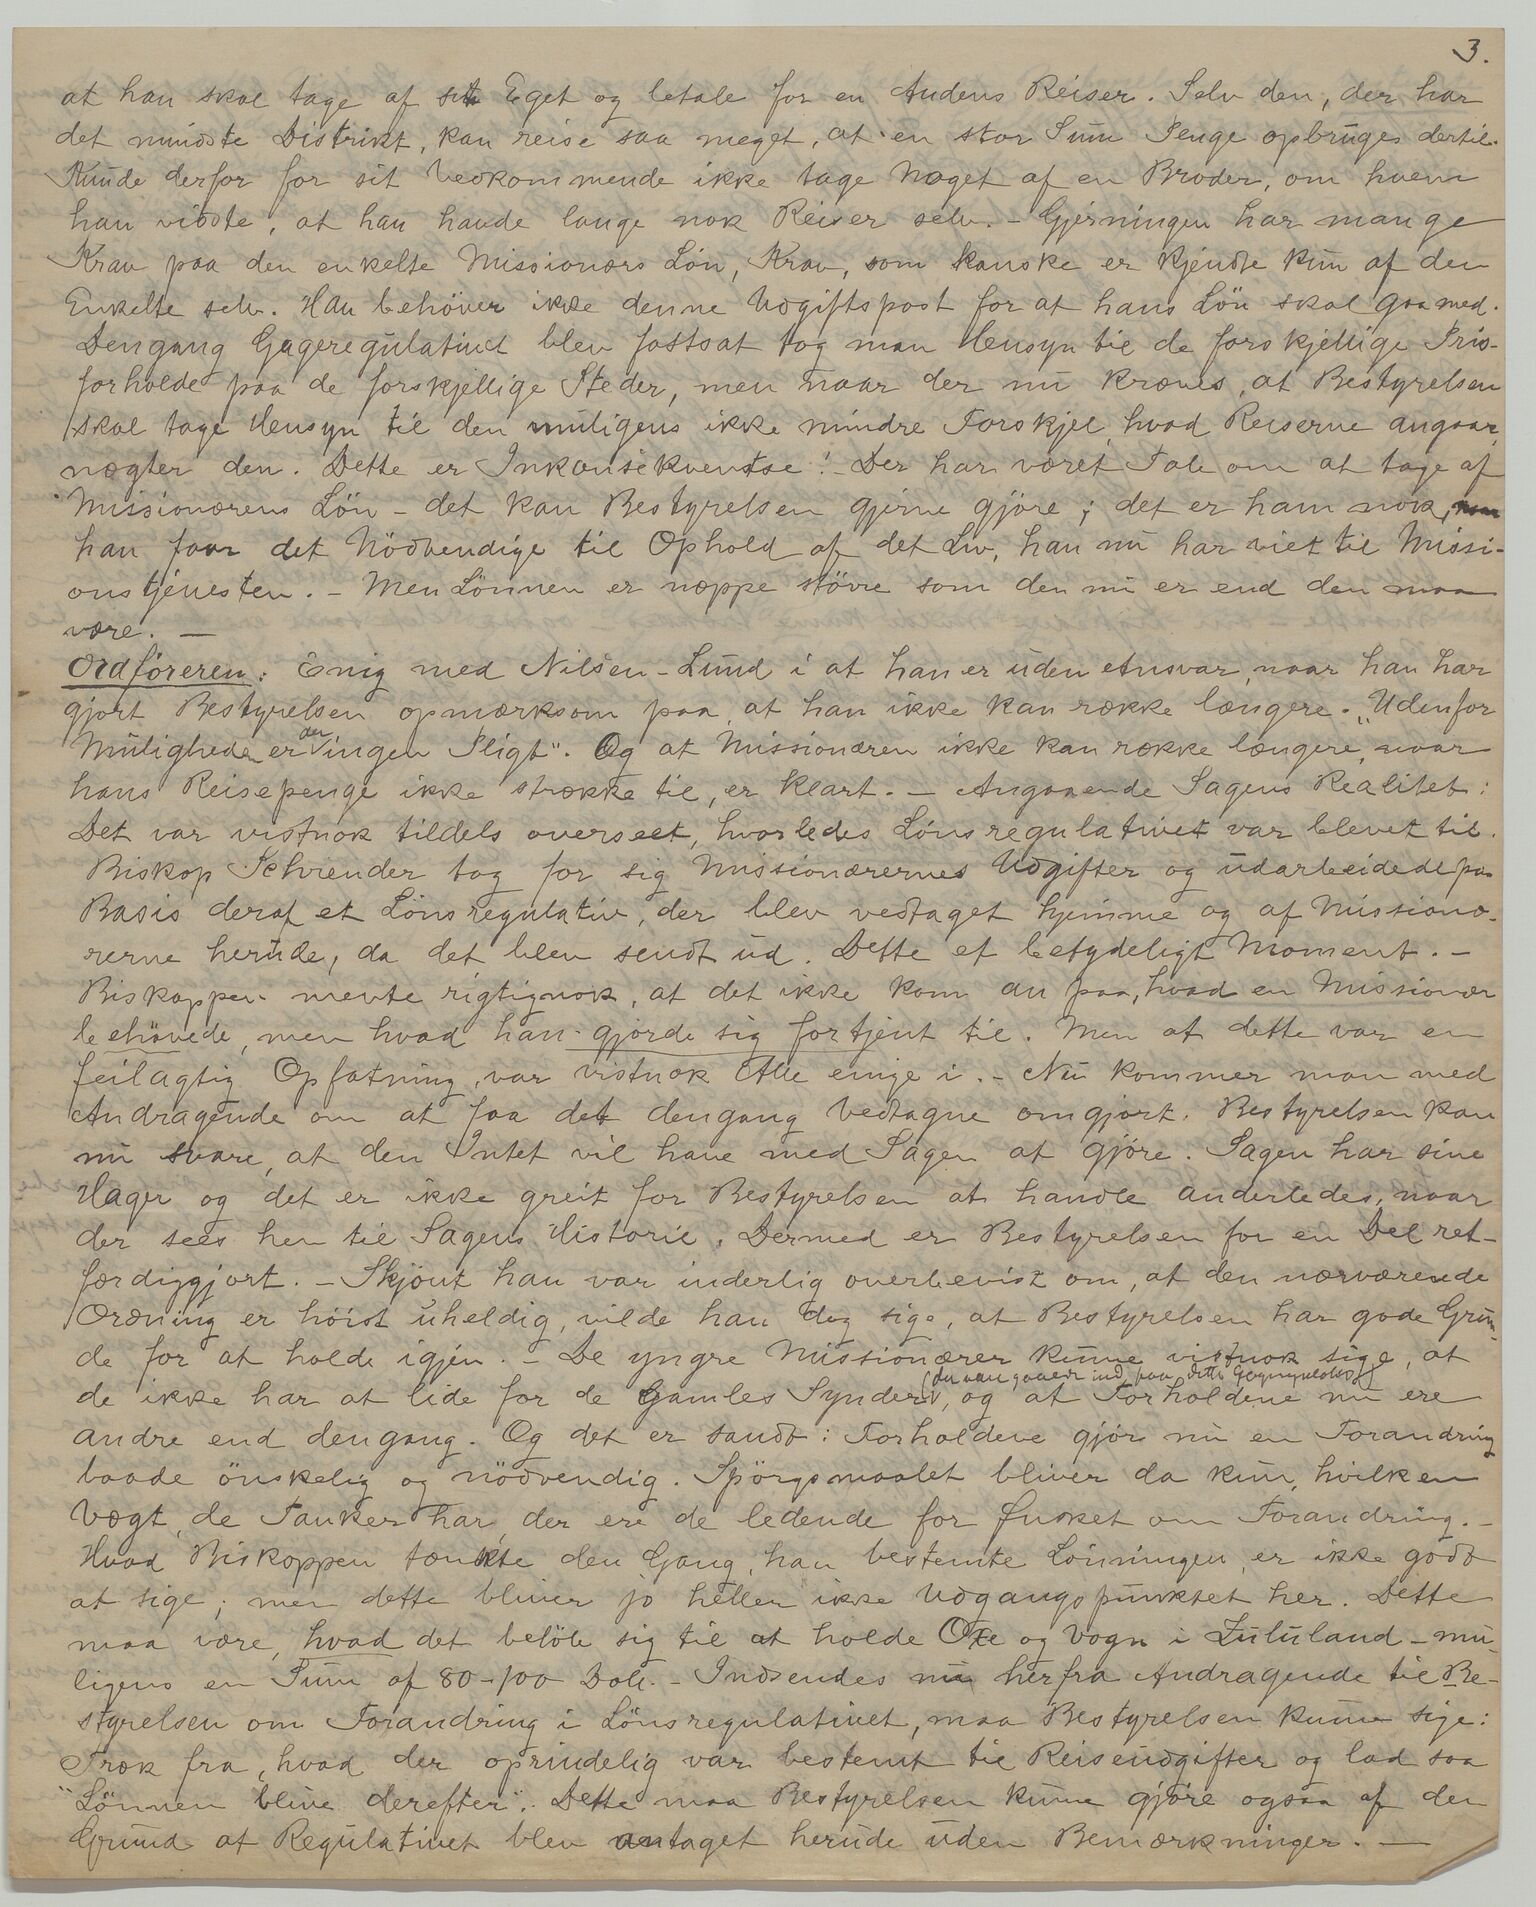 3.
at han skal tage af sit Eget og betale for en Andens Reiser. Selv den, der har
det mindste Distrikt, kan reise saa meget, at en stor Sum Penge opbruges dertil.
Kunde derfor for sit Vedkommende ikke tage Noget af en Broder, om hvem
han vidste, at han havde lange nok Reiser selv. - Gjerningen har mange
Krav paa den enkelte Missionærs Lön, Krav, som kanske er kjendte kun af den
Enkelte selv. Han behöver ikke denne Udgiftspost for at hans Lön skal gaa med.
Dengang Gageregulativet blev fastsat tog man Hensyn til de forskjellige Pris-
forholde paa de forskjellige Steder, men naar der nu kræves, at Bestyrelsen
skal tage Hensyn til den muligens ikke mindre Forskjel, hvad Reiserne angaar,
nægter den. Dette er Inkonsekventse! - Der har været Tale om at tage af
Missionærens Lön - det kan Bestyrelsen gjerne gjöre; det er ham nok,
han faar det Nödvendige til Ophold af det Liv, han nu har viet til Missi-
onstjenesten. - Men Lönnen er næppe större som den nu er end den maa
være. -
Ordföreren: Enig med Nilsen-Lund i at han er uden Ansvar, naar han har
gjort Bestyrelsen opmærksom paa, at han ikke kan række længere. „Udenfor
Muligheden er der ingen Pligt". Og at Missionæren ikke kan række længere, naar
hans Reisepenge ikke strække til, er klart. - Angaaende Sagens Realitet:
Det var vistnok tildels overseet, hvorledes Lönsregulativet var blevet til.
Biskop Schreuder tog for sig Missionærernes Udgifter og udarbeidede paa
Basis deraf et Lönsregulativ, der blev vedtaget hjemme og af Missionæ-
rerne herude, da det blev sendt ud. Dette et betydeligt Moment. -
Biskoppen mente rigtignok, at det ikke kom an paa, hvad en Missionær
behövede, men hvad han gjorde sig fortjent til. Men at dette var en
feilagtig Opfatning, var vistnok Alle enige i. - Nu kommer man med
Andragende om at faa det dengang Vedtagne omgjort. Bestyrelsen kan
nu svare, at den Intet vil have med Sagen at gjöre. Sagen har sine
Hager og det er ikke greit for Bestyrelsen at handle anderledes, naar
der sees hen til Sagens Historie. Dermed er Bestyrelsen for en Del ret-
færdiggjort. - Skjönt han var inderlig overbevist om, at den nærværende
Ordning er höist uheldig, vilde han dog sige, at Bestyrelsen har gode Grun-
de for at holde igjen. - De yngre Missionærer kunne vistnok sige, at
de ikke har at lide for de Gamles Synder, og at Forholdene nu ere
andre end dengang. Og det er sandt: Forholdene gjör nu en Forandring
baade önskelig og nödvendig. Spörgsmaalet bliver da kun, hvilken
Vægt, de Tanker har, der ere de ledende for Önsket om Forandring. -
Hvad Biskoppen tænkte den Gang, han bestemte Lönningen, er ikke godt
at sige; men dette bliver jo heller ikke Udgangspunktet her. Dette
maa være, hvad det belöb sig til at holde Oxe og Vogn i Zululand - mu-
ligens en Sum af 80-100 Doll. - Indsendes nu herfra Andragende til Be-
styrelsen om Forandring i Lönsregulativet, maa Bestyrelsen kunne sige:
Træk fra, hvad der oprindelig var bestemt til Reiseudgifter og lad saa
"Lönnen blive derefter". Dette maa Bestyrelsen kunne gjöre ogsaa af den
Grund at Regulativet blev antaget herude uden Bemærkninger. -